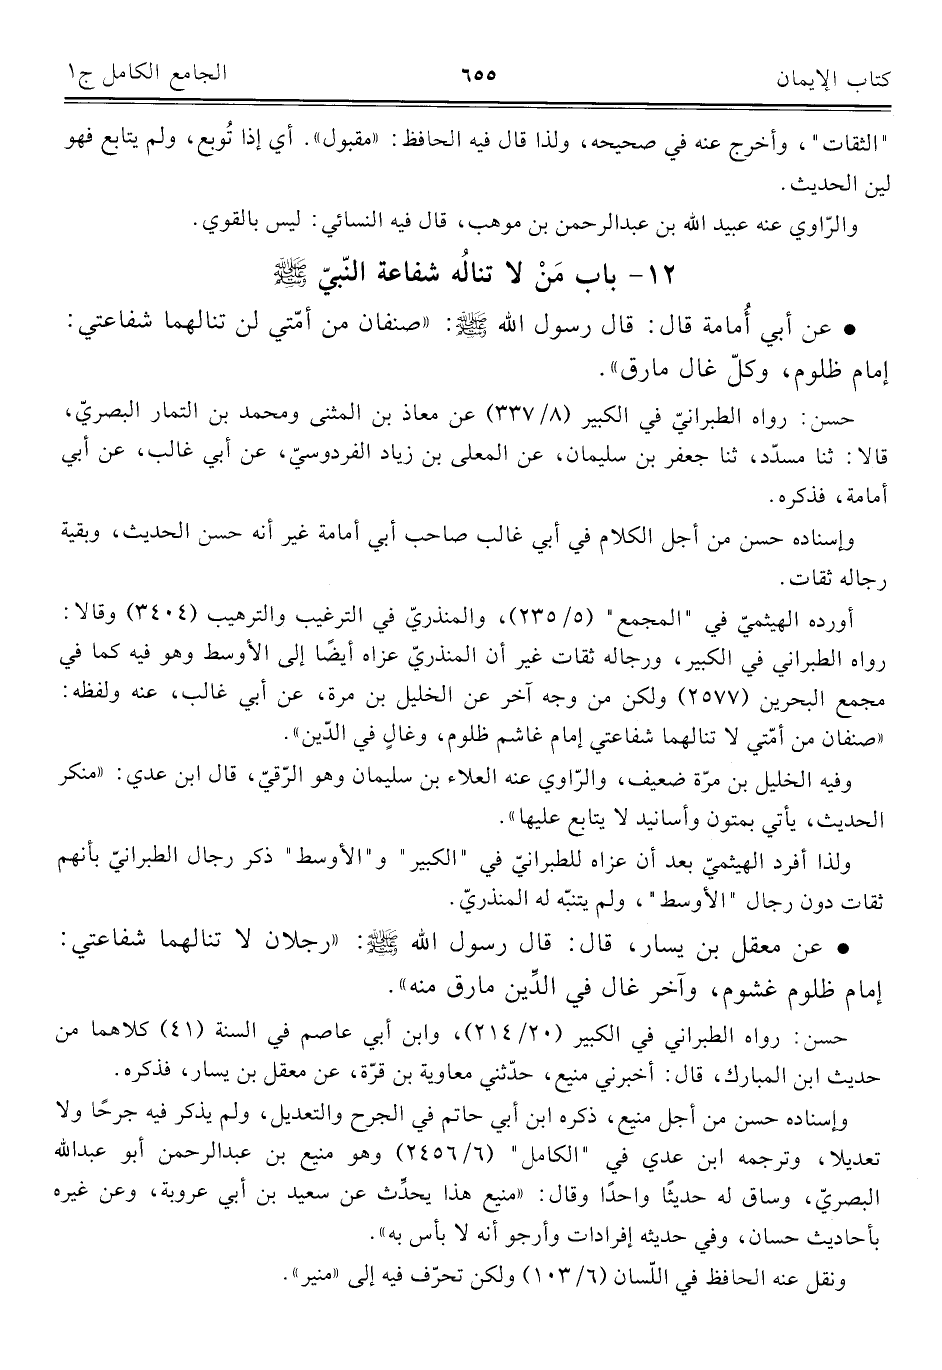 كتاب الإيمان ٦٥٥ الجامع الكامل ج١
"الثقات"، وأخرج عنه في صحيحه، ولذا قال فيه الحافظ: «مقبول». أي إذا تُوبع، ولم يتابع فهو
لين الحديث.
والرّاوي عنه عبيد الله بن عبدالرحمن بن موهب، قال فيه النسائي: ليس بالقوي.
١٢- باب مَنْ لا تنالُه شفاعة النّبيّ ﷺ
● عن أبي أُمامة قال: قال رسول الله ﷺ: «صنفان من أمّتي لن تنالهما شفاعتي:
إمام ظلوم، وكلّ غال مارق».
حسن: رواه الطبرانيّ في الكبير (٨/ ٣٣٧) عن معاذ بن المثنى ومحمد بن التمار البصريّ،
قالا: ثنا مسدّد، ثنا جعفر بن سليمان، عن المعلى بن زياد الفردوسيّ، عن أبي غالب، عن أبي
أمامة، فذكره.
وإسناده حسن من أجل الكلام في أبي غالب صاحب أبي أمامة غير أنه حسن الحديث، وبقية
رجاله ثقات.
أورده الهيثميّ في "المجمع" (٥/ ٢٣٥)، والمنذريّ في الترغيب والترهيب (٣٤٠٤) وقالا:
رواه الطبراني في الكبير، ورجاله ثقات غير أن المنذريّ عزاه أيضًا إلى الأوسط وهو فيه كما في
مجمع البحرين (٢٥٧٧) ولكن من وجه آخر عن الخليل بن مرة، عن أبي غالب، عنه ولفظه:
«صنفان من أمّتي لا تنالهما شفاعتي إمام غاشم ظلوم، وغالٍ في الدّين».
وفيه الخليل بن مرّة ضعيف، والرّاوي عنه العلاء بن سليمان وهو الرّقيّ، قال ابن عدي: «منكر
الحديث، يأتي بمتون وأسانيد لا يتابع عليها».
ولذا أفرد الهيثميّ بعد أن عزاه للطبرانيّ في "الكبير" و"الأوسط" ذكر رجال الطبرانيّ بأنهم
ثقات دون رجال "الأوسط"، ولم يتنبّه له المنذريّ.
● عن معقل بن يسار، قال: قال رسول الله ﷺ: «رجلان لا تنالهما شفاعتي:
إمام ظلوم غشوم، وآخر غال في الدِّين مارق منه».
حسن: رواه الطبراني في الكبير (٢٠/ ٢١٤)، وابن أبي عاصم في السنة (٤١) كلاهما من
حديث ابن المبارك، قال: أخبرني منيع، حدّثني معاوية بن قرّة، عن معقل بن يسار، فذكره.
وإسناده حسن من أجل منيع، ذكره ابن أبي حاتم في الجرح والتعديل، ولم يذكر فيه جرحًا ولا
تعديلا، وترجمه ابن عدي في "الكامل" (٦/ ٢٤٥٦) وهو منيع بن عبدالرحمن أبو عبدالله
البصريّ، وساق له حديثًا واحدًا وقال: «منيع هذا يحدِّث عن سعيد بن أبي عروبة، وعن غيره
بأحاديث حسان، وفي حديثه إفرادات وأرجو أنه لا بأس به».
ونقل عنه الحافظ في اللّسان (٦/ ١٠٣) ولكن تحرّف فيه إلى «منير».